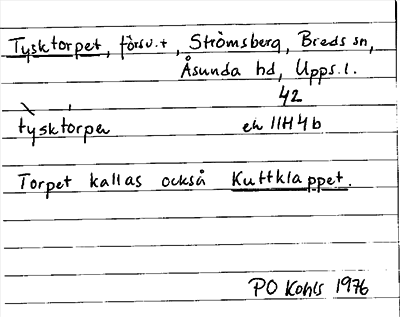 Tysktorpet, försv.t, Strömsberg, Breds sn,
Åsunda hd, Upps.l.
42
tysktorpen
ek 11H4b
Torpet kallas också Kuttklappet.
PO Kohls 1976